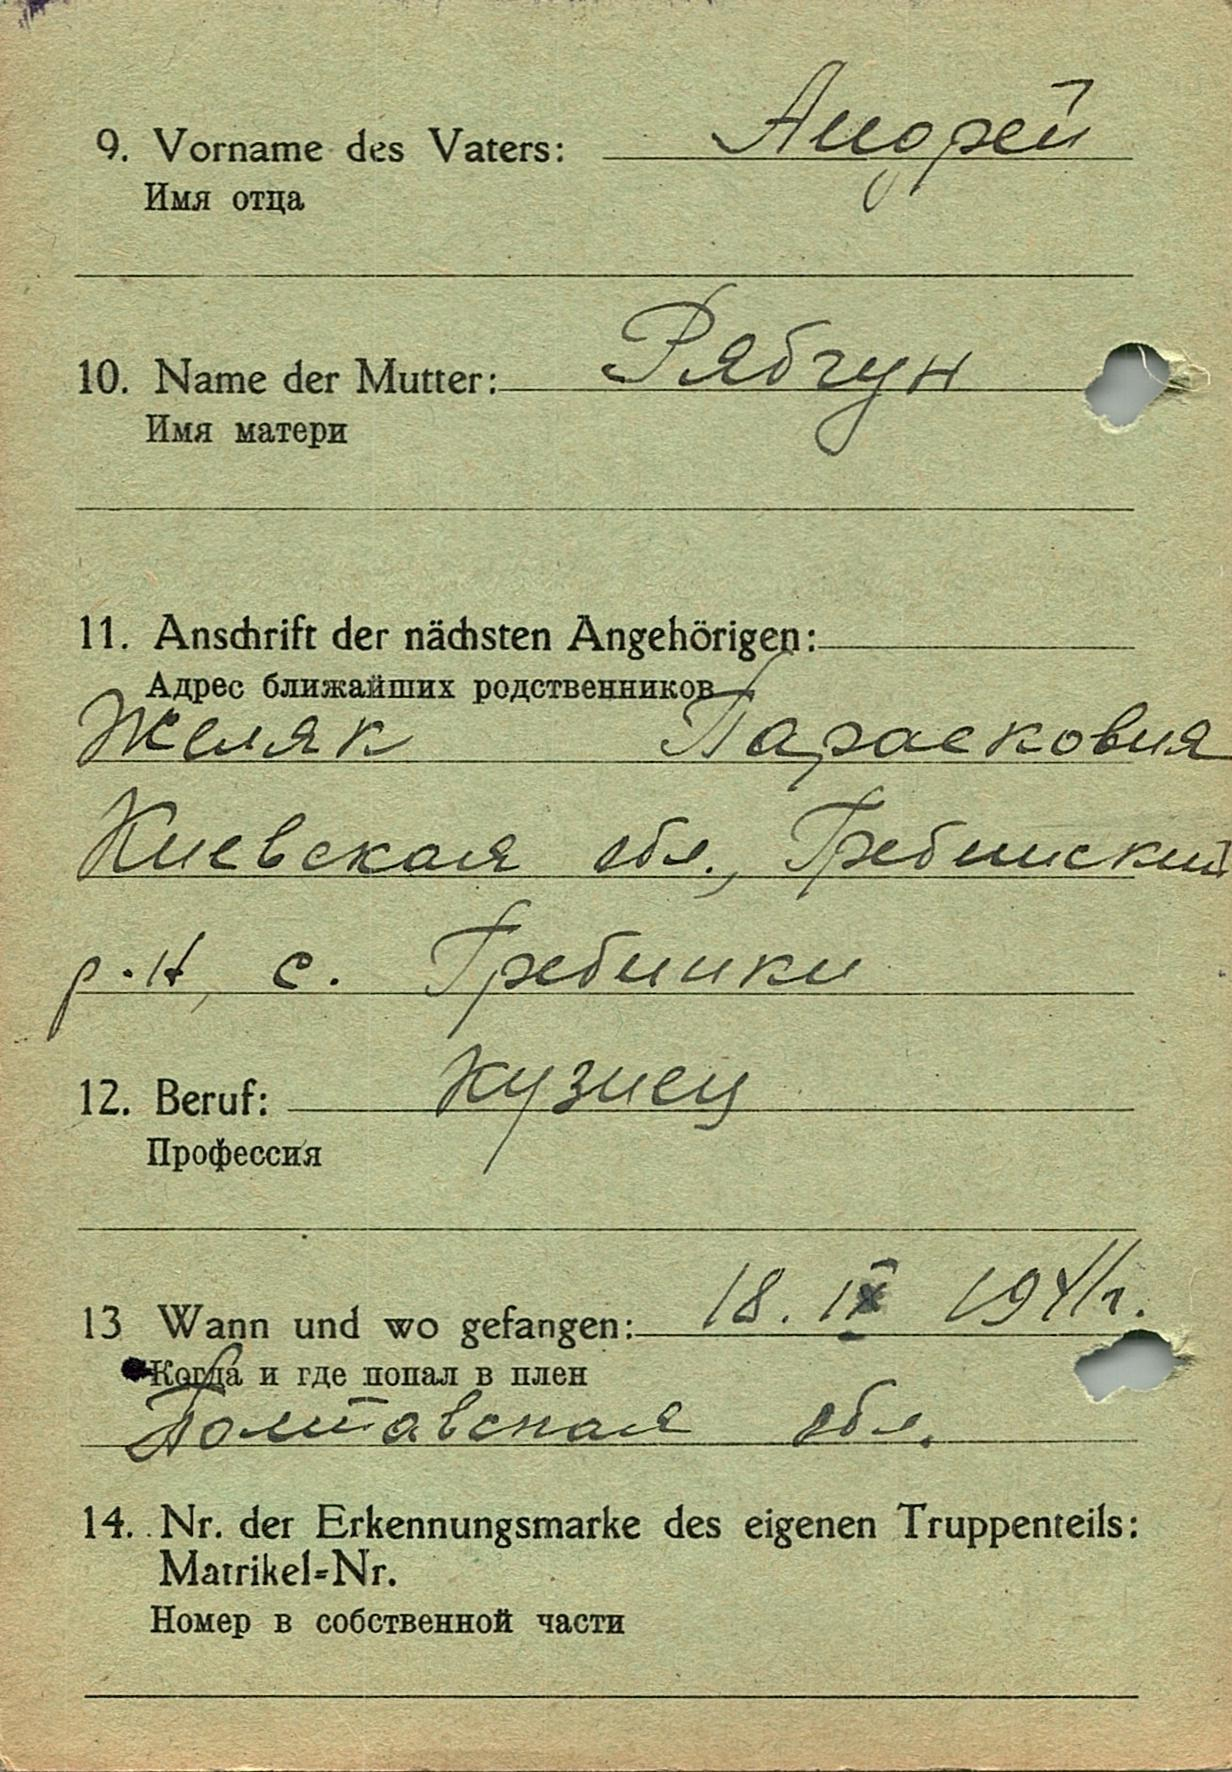 9. Vorname des Vaters: Андрей
Имя отца
10. Name der Mutter: Рябчун
Имя матери
11. Anschrift der nächsten Angehörigen:
Адрес ближайших родственников
Желяк Парасковия
Киевская обл., Гребинский
р-н, с. Гребинки
12. Beruf: кузнец
Профессия
13 Wann und wo gefangen: 18. IX 1941 г.
Когда и где попал в плен
Полтавская обл.
14. Nr. der Erkennungsmarke des eigenen Truppenteils:
Matrikel-Nr.
Номер в собственной части